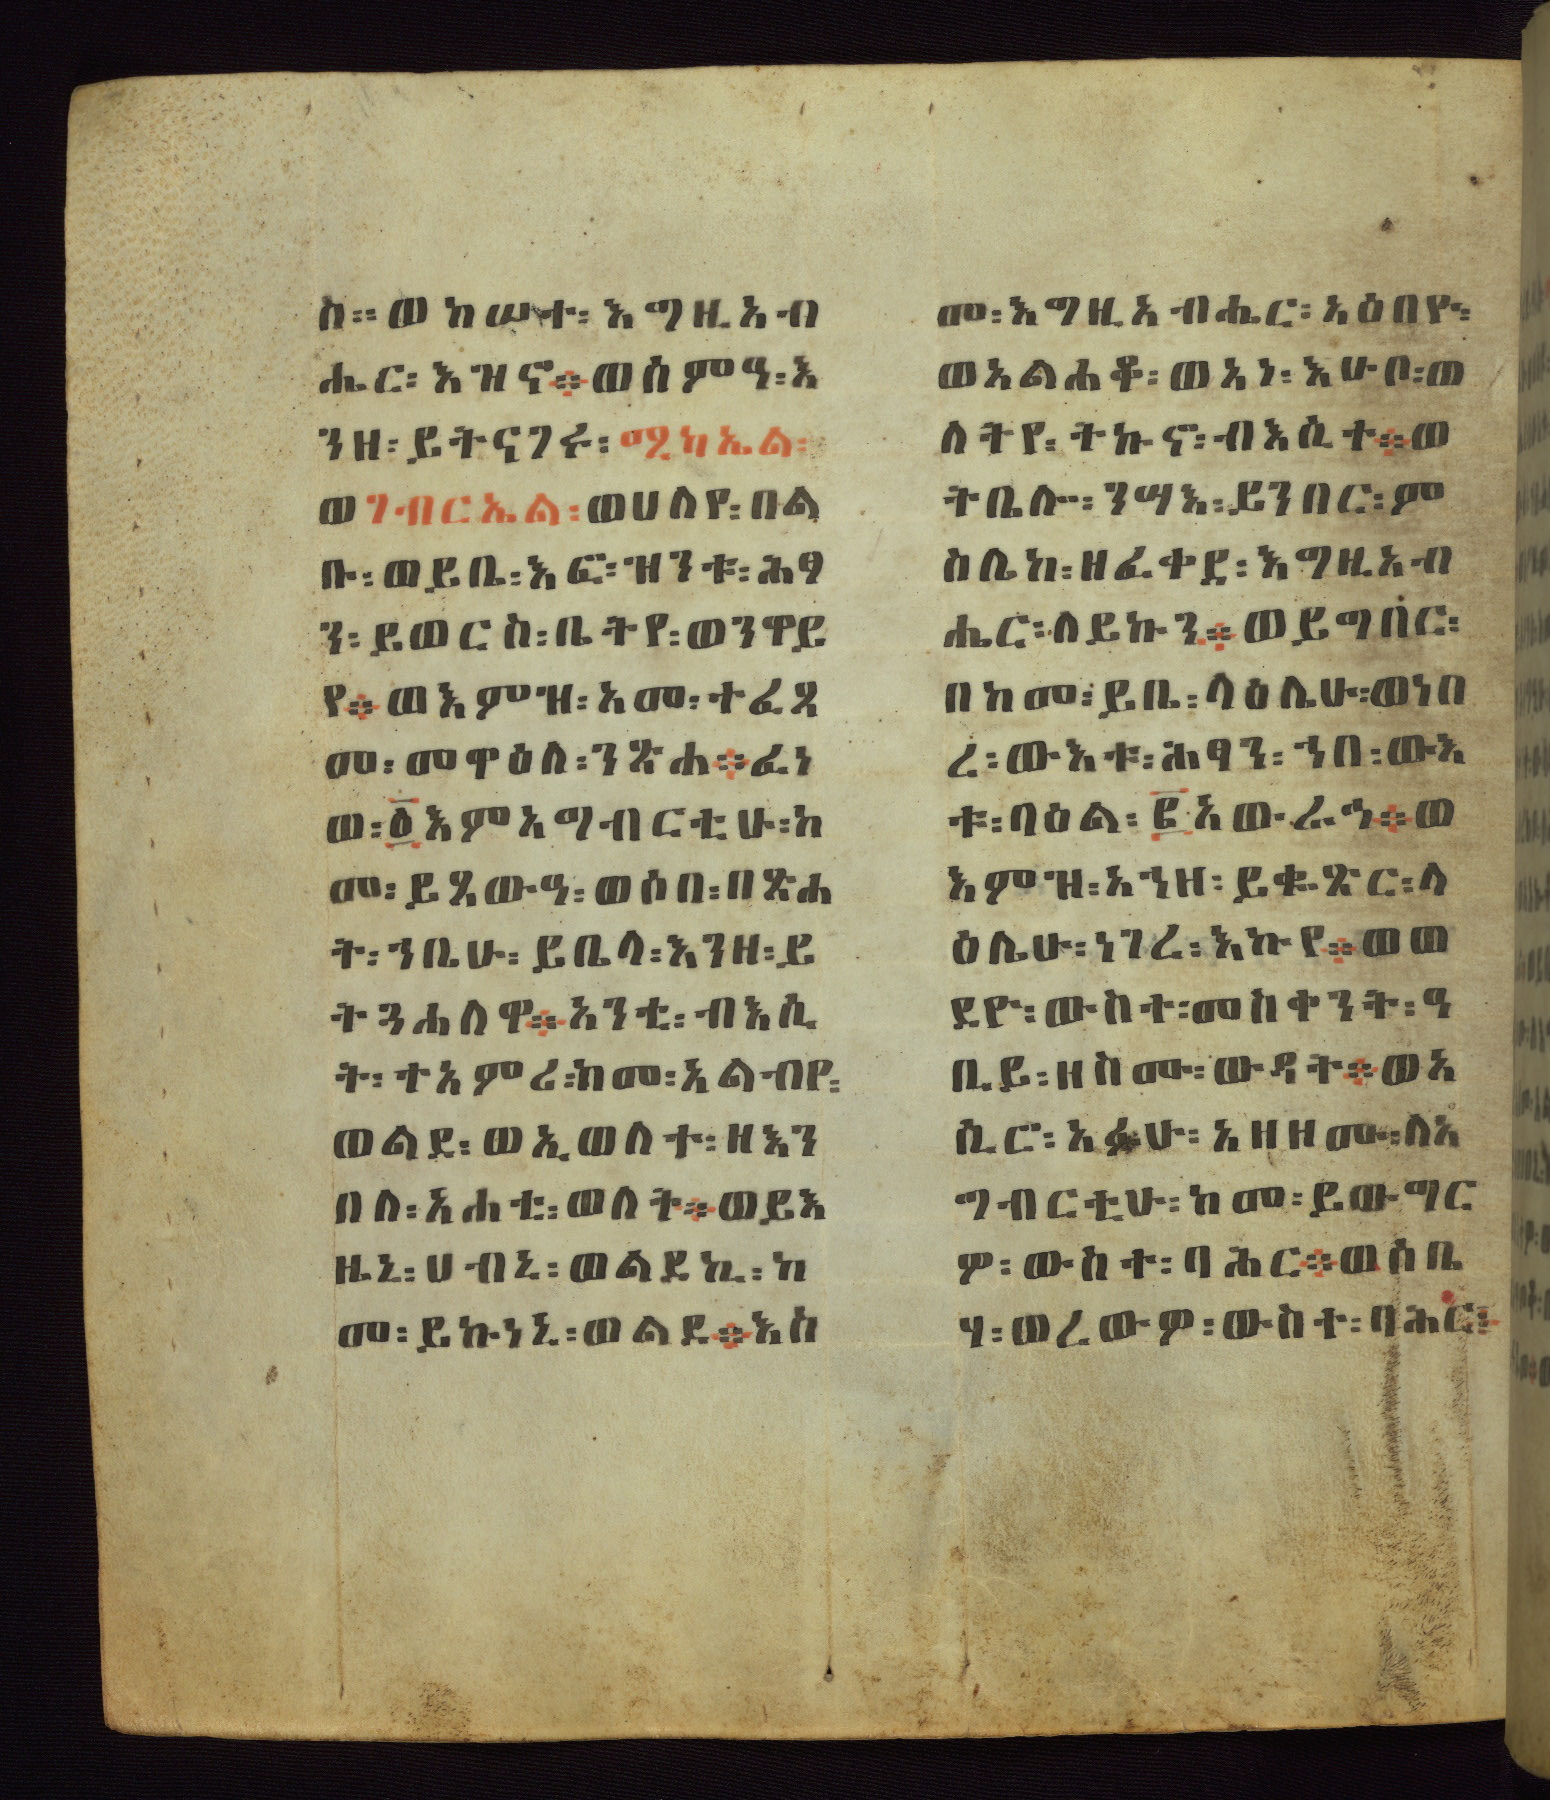 ስ፡፡ ወከሠተ፡ እግዚአብ
ሔር፡ እዝኖ፨ ወሰምዓ፡ እ
ንዘ፡ ይትናገሩ፡ ሚካኤል፡
ወገብርኤል፡ ወሀለየ፡ በል
ቡ፡ ወይቤ፡ እፎ፡ ዝንቱ፡ ሕፃ
ን፡ ይወርስ፡ ቤትየ፡ ወንዋይ
የ፨ ወእምዝ፡ አመ፡ ተፈጸ
መ፡ መዋዕለ፡ ንጽሐ፨ ፈነ
ወ፡ ፩እምአግብርቲሁ፡ ከ
መ፡ ይጸውዓ፡ ወሶበ፡ በጽሐ
ት፡ ኀቤሁ፡ ይቤላ፡ እንዘ፡ ይ
ትጓሐለዋ፨ አንቲ፡ ብእሲ
ት፡ ተአምሪ፡ ከመ፡ አልብየ፡
ወልደ፡ ወኢወለተ፡ ዘእን
በለ፡ አሐቲ፡ ወለት፨ ወይእ
ዜኒ፡ ሀብኒ፡ ወልደኪ፡ ከ
መ፡ ይኩነኒ፡ ወልደ፨ እስ
መ፡ እግዚአብሔር፡ አዕበዮ፡
ወአልሐቆ፡ ወአነ፡ እሁቦ፡ ወ
ለትየ፡ ትኩኖ፡ ብእሲተ፨ ወ
ትቤሎ፡ ንሣእ፡ ይንበር፡ ም
ስሌከ፡ ዘፈቀደ፡ እግዚአብ
ሔር፡ ለይኩን፨ ወይግበር፡
በከመ፡ ይቤ፡ ላዕሌሁ፡ ወነበ
ረ፡ ውእቱ፡ ሕፃን፡ ኀበ፡ ውእ
ቱ፡ ባዕል፡ ፪አውራኀ፨ ወ
እምዝ፡ አኀዘ፡ ይቁጽር፡ ላ
ዕሌሁ፡ ነገረ፡ እኩየ፨ ወወ
ደዮ፡ ውስተ፡ መስቀንት፡ ዓ
ቢይ፡ ዘስሙ፡ ውዳት፨ ወአ
ሲሮ፡ አፉሁ፡ አዘዘሙ፡ ለአ
ግብርቲሁ፡ ከመ፡ ይውግር
ዎ፡ ውስተ፡ ባሕር፨ ወሰቤ
ሃ፡ ወረውዎ፡ ውስተ፡ ባሕር፨